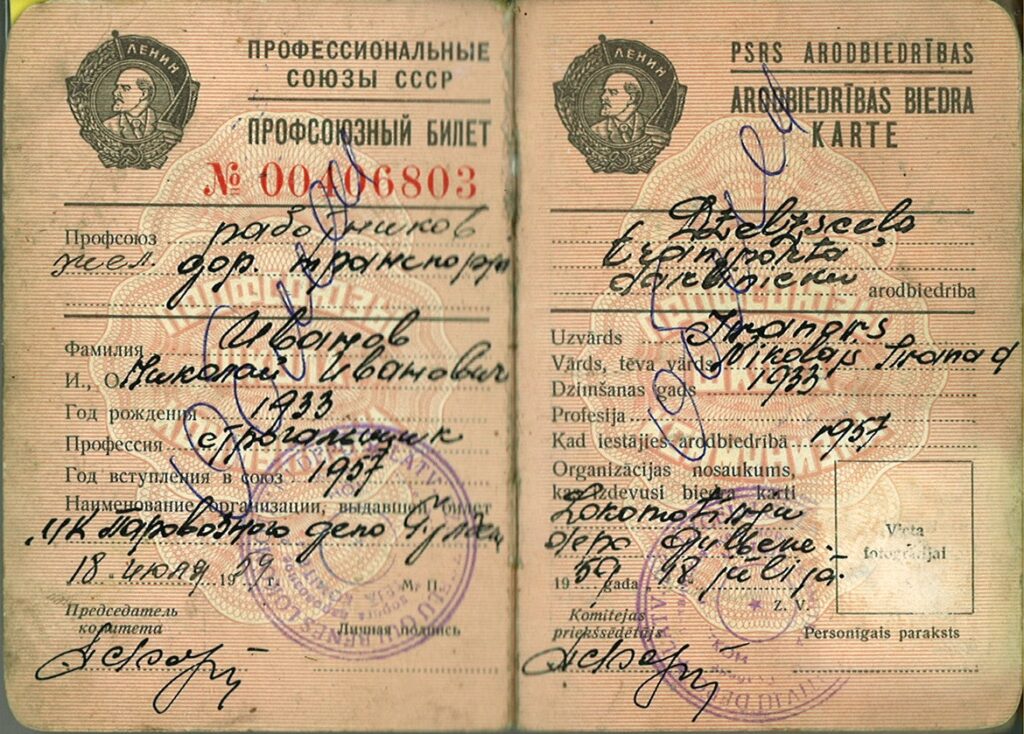 ЛЕНИН
ПРОФЕССИОНАЛЬНЫЕ
СОЮЗЫ СССР
ПРОФСОЮЗНЫЙ БИЛЕТ
№ 00406803
Профсоюз работников
жел. дор. транспорта
Фамилия Иванов
И., О. Николай Иванович
Год рождения 1933
Профессия строгальщик
Год вступления в союз 1957
Наименование организации, выдавшей билет
Паровозного депо Гулбен
18 июля 1959 г.
М. П.
Председатель
комитета
Личная подпись
ЛЕНИН
PSRS ARODBIEDRĪBAS
ARODBIEDRĪBAS BIEDRA
KARTE
Dzelzsceļa
transporta
darbinieku arodbiedrība
Uzvārds Ivanovs
Vārds, tēva vārds Nikolajs Ivana d
Dzimšanas gads 1933
Profesija
Kad iestājies arodbiedrībā 1957
Organizācijas nosaukums,
kas izdevusi biedra karti
Lokomotīvju
depo Gulbene.
1959 gada 18 jūlijā.
Vieta
fotografijai
Z. V.
Komitejas
priekšsēdētājs
Personīgais paraksts